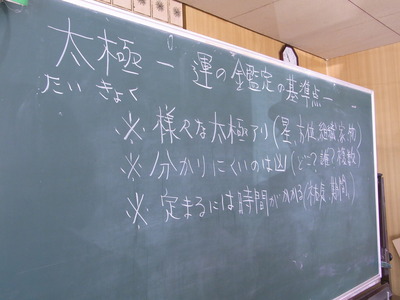 太極－運の鑑定の基準点－
たいきょく
※様々な太極アリ(星、方位、組織、家、物)
※分かりにくいのは凶(どこ?誰?複数)
※定まるには時間がかかる(積負、期間、)